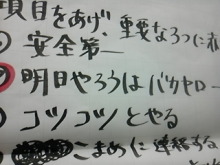 項目をあげ、重要な3つに赤
②安全第一
③明日やろうはバカヤロー
④コツコツとやる
こまめに連絡する